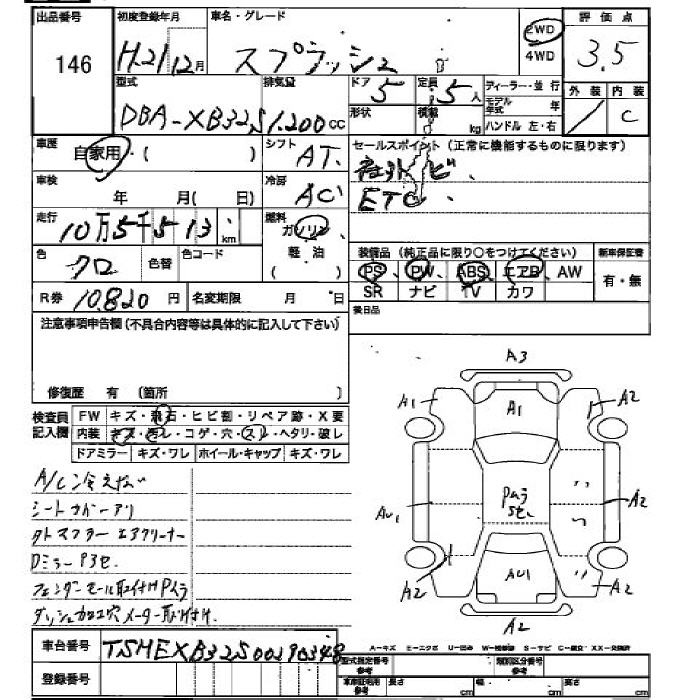 出品番号
146
初度登録年月
H.21/12月
車名・グレード
スプラッシュ
2WD
4WD
評価点
3.5
型式
DBA-XB32S
排気量
1.200cc
ドア
5
定員
5人
形状
積載
kg
ディーラー・並行
モデル年式 年
ハンドル 左・右
外装
内装
C
車歴
自家用・( )
シフト
AT.
セールスポイント(正常に機能するものに限ります)
社外ナビ、
ETC
車検
年 月( 日)
冷房
AC
走行
10万5千513 km
燃料
ガソリン
軽油
( )
色
クロ
色替
色コード
装備品(純正品に限り○をつけてください)
PS、PW、ABS、エアB、AW
SR ナビ TV カワ
新車保証書
有・無
R券
10.820円
名変期限 月 日
後日品
注意事項申告欄(不具合内容等は具体的に記入して下さい)
修復歴 有 〔箇所 〕
検査員記入欄
FW キズ・飛石・ヒビ割・リペア跡・X要
内装 キズ・ヨゴレ・コゲ・穴・スレ・ヘタリ・破レ
ドアミラー キズ・ワレ ホイール・キャップ キズ・ワレ
A/C冷えない
シートカバーアリ
外マフラー エアクリーナー
Dミラーウラ
フェンダーモール取付けPムラ
ダッシュ加工穴メーター取付け.
A3
A1
A1
A2
AU1
Pムラ
A2
AU1
A2
A2
A2
車台番号
TSMEXB32S00290348
登録番号
A-キズ E-エクボ U-凹み W-補修跡 S-サビ C-腐食 XX-交換済
型式指定番号
参考
類別区分番号
参考
車庫証明用
参考
長さ cm
幅 cm
高さ cm